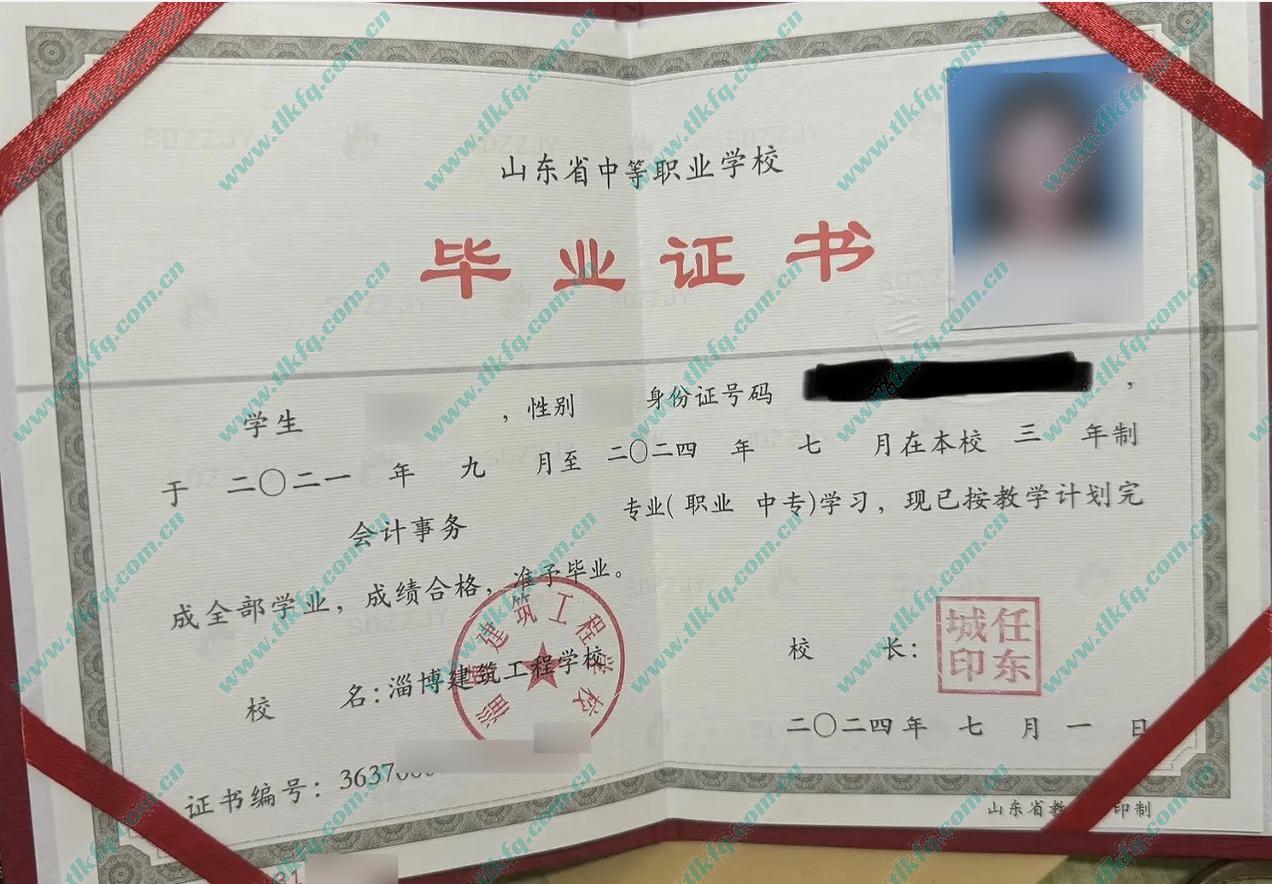 山东省中等职业学校
毕业证书
学生 ，性别 身份证号码 ，
于 二〇二一 年 九 月至 二〇二四 年 七 月在本校 三 年制
会计事务 专业( 职业 中专)学习，现已按教学计划完
成全部学业，成绩合格，准予毕业。
校 名：淄博建筑工程学校
淄博建筑工程学校
校 长：
任东城印
二〇二四年 七 月 一 日
证书编号：3637
山东省教 印制
SDZZJY
www.tlkfq.com.cn